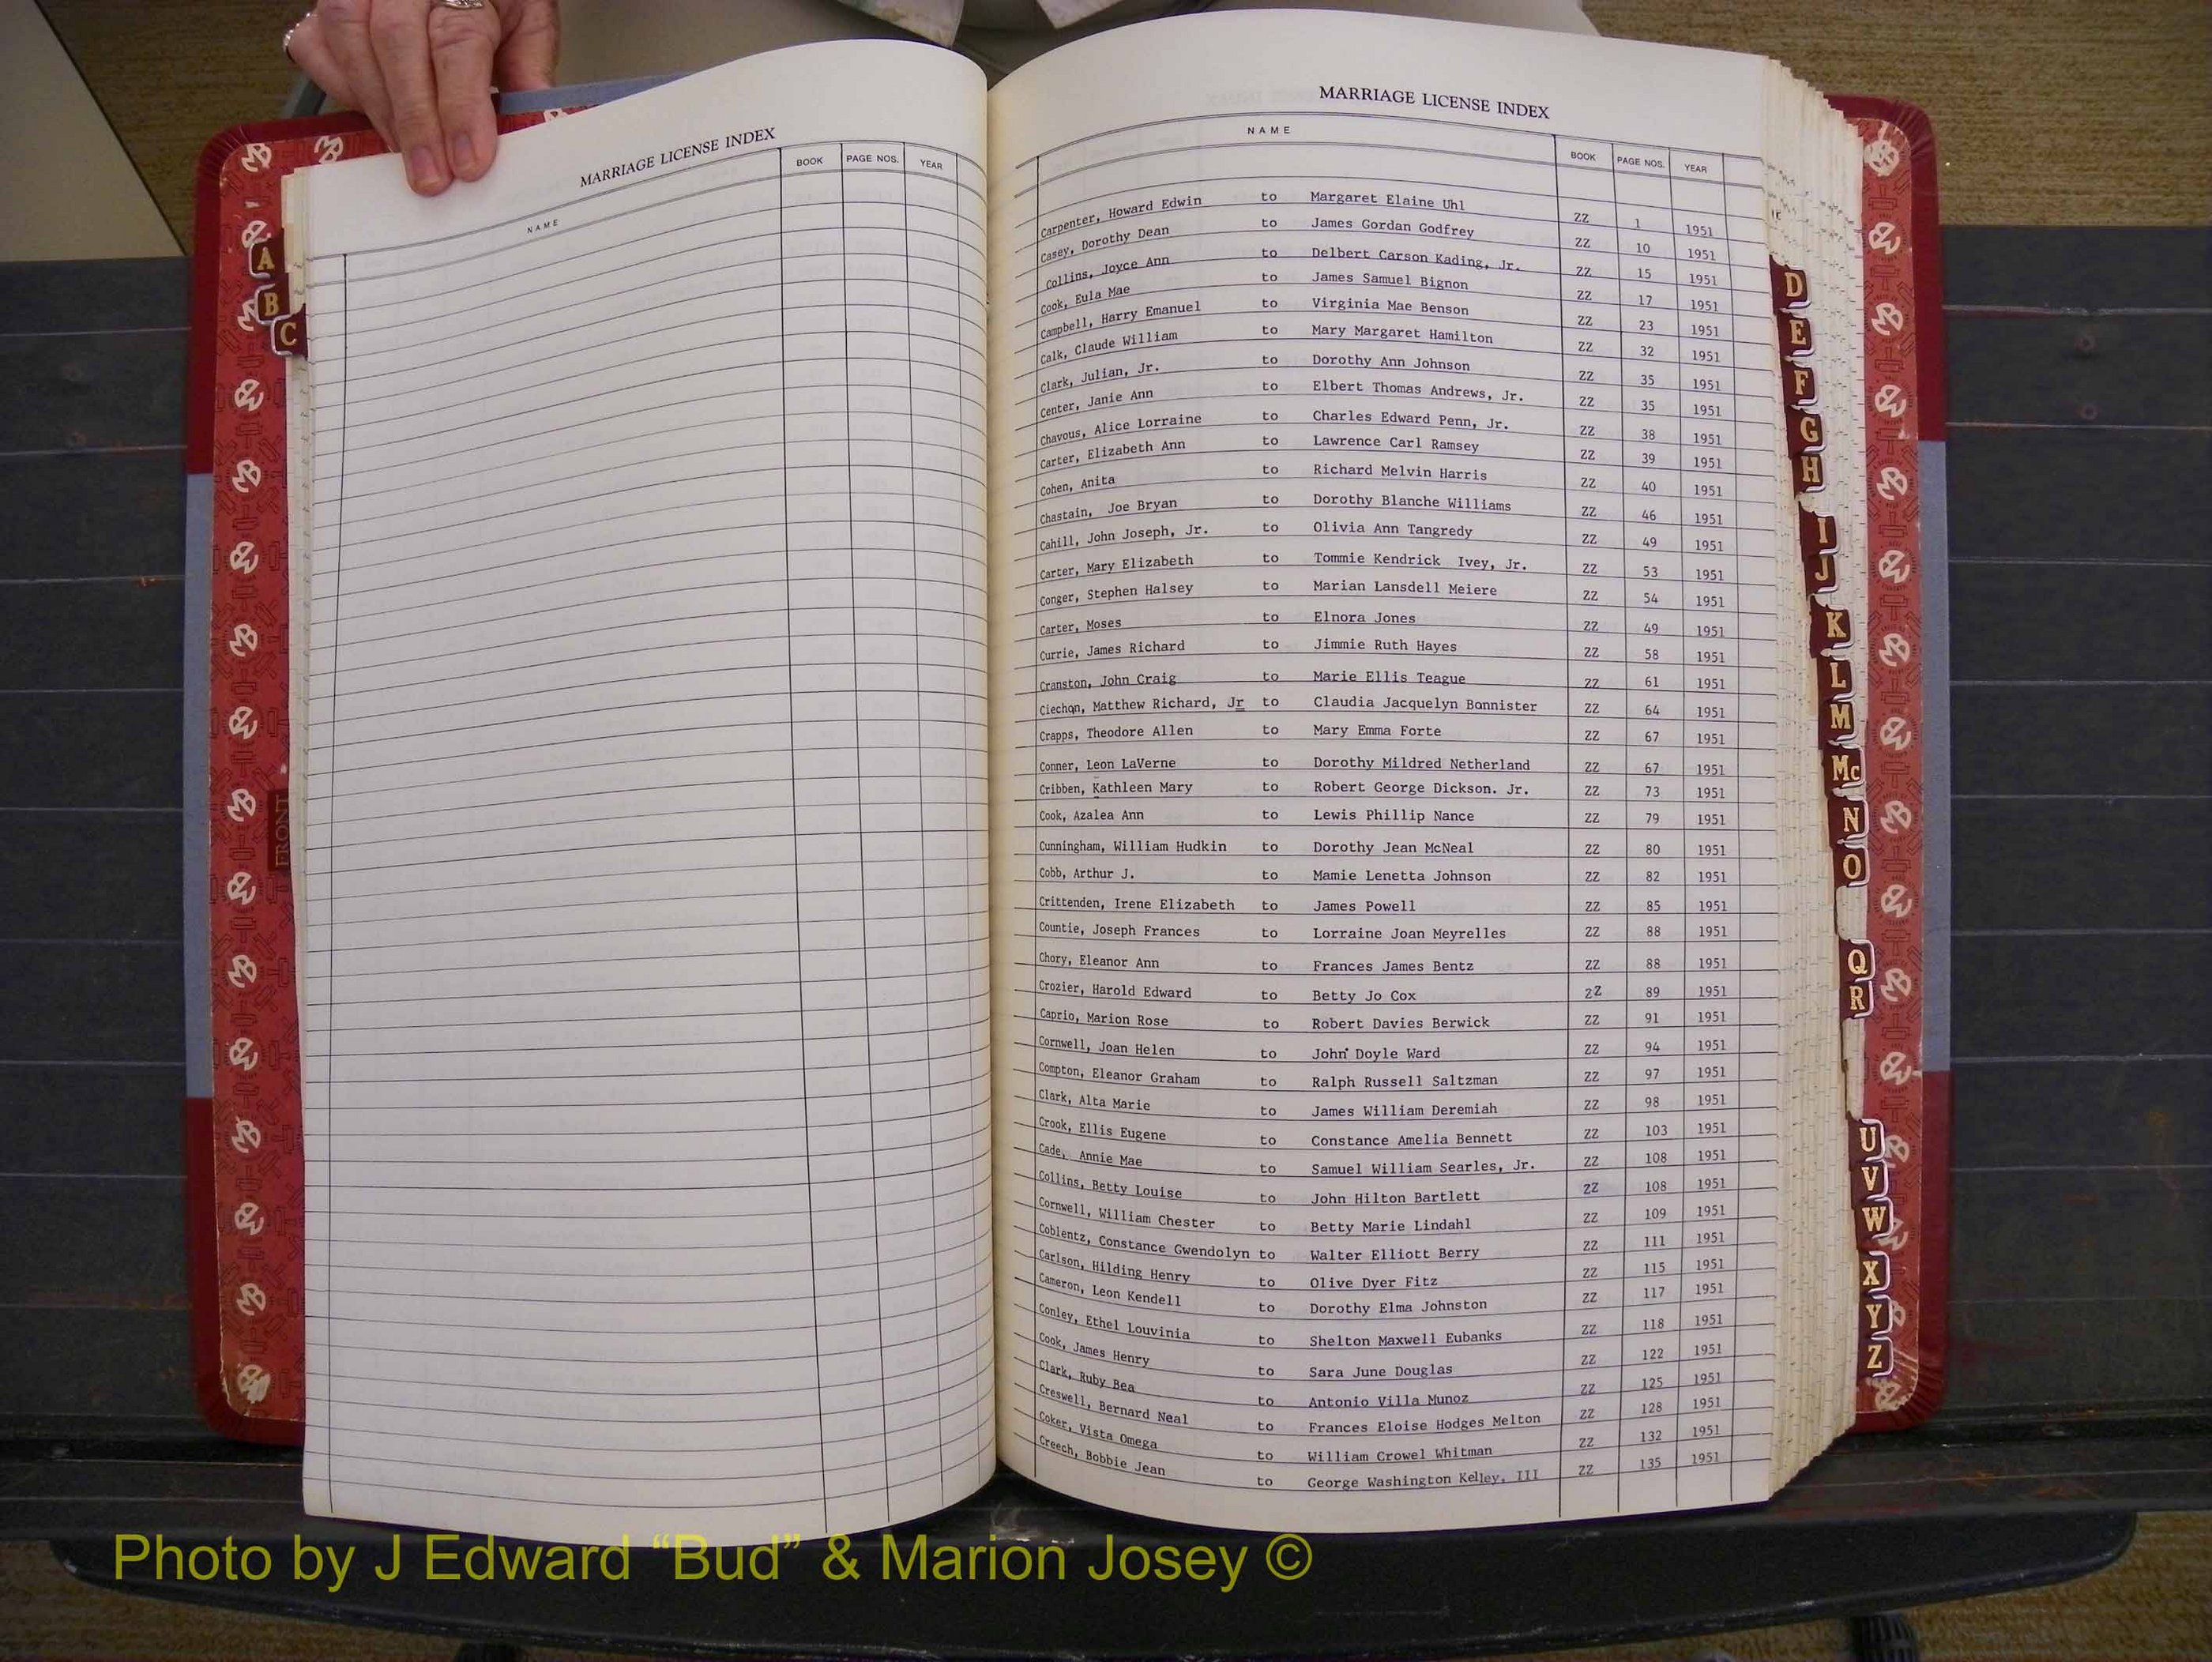 MARRIAGE LICENSE INDEX
NAME BOOK PAGE NOS. YEAR
A
B
C
FRONT
MARRIAGE LICENSE INDEX
NAME BOOK PAGE NOS. YEAR
Carpenter, Howard Edwin to Margaret Elaine Uhl ZZ 1 1951
Casey, Dorothy Dean to James Gordan Godfrey ZZ 10 1951
Collins, Joyce Ann to Delbert Carson Kading, Jr. ZZ 15 1951
Cook, Eula Mae to James Samuel Bignon ZZ 17 1951
Campbell, Harry Emanuel to Virginia Mae Benson ZZ 23 1951
Calk, Claude William to Mary Margaret Hamilton ZZ 32 1951
Clark, Julian, Jr. to Dorothy Ann Johnson ZZ 35 1951
Center, Janie Ann to Elbert Thomas Andrews, Jr. ZZ 35 1951
Chavous, Alice Lorraine to Charles Edward Penn, Jr. ZZ 38 1951
Carter, Elizabeth Ann to Lawrence Carl Ramsey ZZ 39 1951
Cohen, Anita to Richard Melvin Harris ZZ 40 1951
Chastain, Joe Bryan to Dorothy Blanche Williams ZZ 46 1951
Cahill, John Joseph, Jr. to Olivia Ann Tangredy ZZ 49 1951
Carter, Mary Elizabeth to Tommie Kendrick Ivey, Jr. ZZ 53 1951
Conger, Stephen Halsey to Marian Lansdell Meiere ZZ 54 1951
Carter, Moses to Elnora Jones ZZ 49 1951
Currie, James Richard to Jimmie Ruth Hayes ZZ 58 1951
Cranston, John Craig to Marie Ellis Teague ZZ 61 1951
Ciechon, Matthew Richard, Jr to Claudia Jacquelyn Bannister ZZ 64 1951
Crapps, Theodore Allen to Mary Emma Forte ZZ 67 1951
Conner, Leon LaVerne to Dorothy Mildred Netherland ZZ 67 1951
Cribben, Kathleen Mary to Robert George Dickson. Jr. ZZ 73 1951
Cook, Azalea Ann to Lewis Phillip Nance ZZ 79 1951
Cunningham, William Hudkin to Dorothy Jean McNeal ZZ 80 1951
Cobb, Arthur J. to Mamie Lenetta Johnson ZZ 82 1951
Crittenden, Irene Elizabeth to James Powell ZZ 85 1951
Countie, Joseph Frances to Lorraine Joan Meyrelles ZZ 88 1951
Chory, Eleanor Ann to Frances James Bentz ZZ 88 1951
Crozier, Harold Edward to Betty Jo Cox 2Z 89 1951
Caprio, Marion Rose to Robert Davies Berwick ZZ 91 1951
Cornwell, Joan Helen to John Doyle Ward ZZ 94 1951
Compton, Eleanor Graham to Ralph Russell Saltzman ZZ 97 1951
Clark, Alta Marie to James William Deremiah ZZ 98 1951
Crook, Ellis Eugene to Constance Amelia Bennett ZZ 103 1951
Cade, Annie Mae to Samuel William Searles, Jr. ZZ 108 1951
Collins, Betty Louise to John Hilton Bartlett ZZ 108 1951
Cornwell, William Chester to Betty Marie Lindahl ZZ 109 1951
Coblentz, Constance Gwendolyn to Walter Elliott Berry ZZ 111 1951
Carlson, Hilding Henry to Olive Dyer Fitz ZZ 115 1951
Cameron, Leon Kendell to Dorothy Elma Johnston ZZ 117 1951
Conley, Ethel Louvinia to Shelton Maxwell Eubanks ZZ 118 1951
Cook, James Henry to Sara June Douglas ZZ 122 1951
Clark, Ruby Bea to Antonio Villa Munoz ZZ 125 1951
Creswell, Bernard Neal to Frances Eloise Hodges Melton ZZ 128 1951
Coker, Vista Omega to William Crowel Whitman ZZ 132 1951
Creech, Bobbie Jean to George Washington Kelley, III ZZ 135 1951
D
E
F
G
H
I
J
K
L
M
Mc
N
O
Q
R
U
V
W
X
Y
Z
Photo by J Edward “Bud” & Marion Josey ©